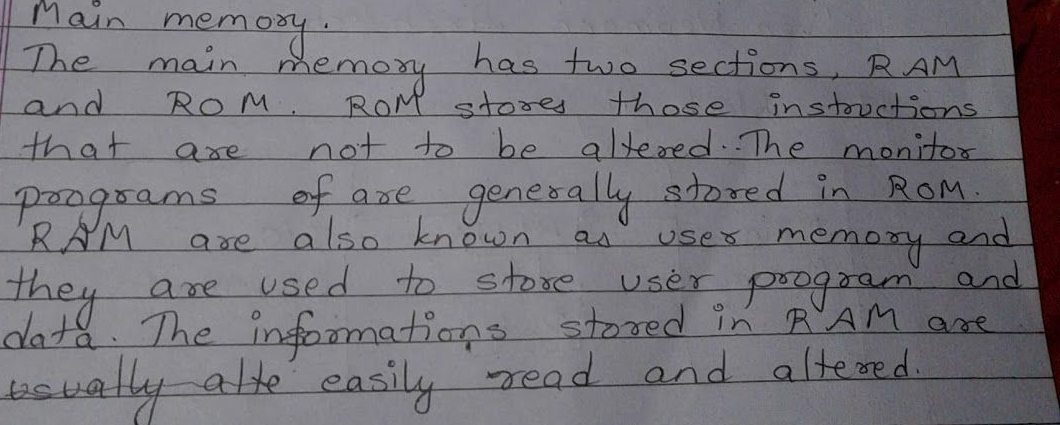 Main memory.
The main memory has two sections, RAM
and ROM. ROM stores those instructions
that are not to be altered. The monitor
programs of are generally stored in ROM.
RAM are also known as user memory and
they are used to store user program and
data. The informations stored in RAM are
usually alte easily read and altered.